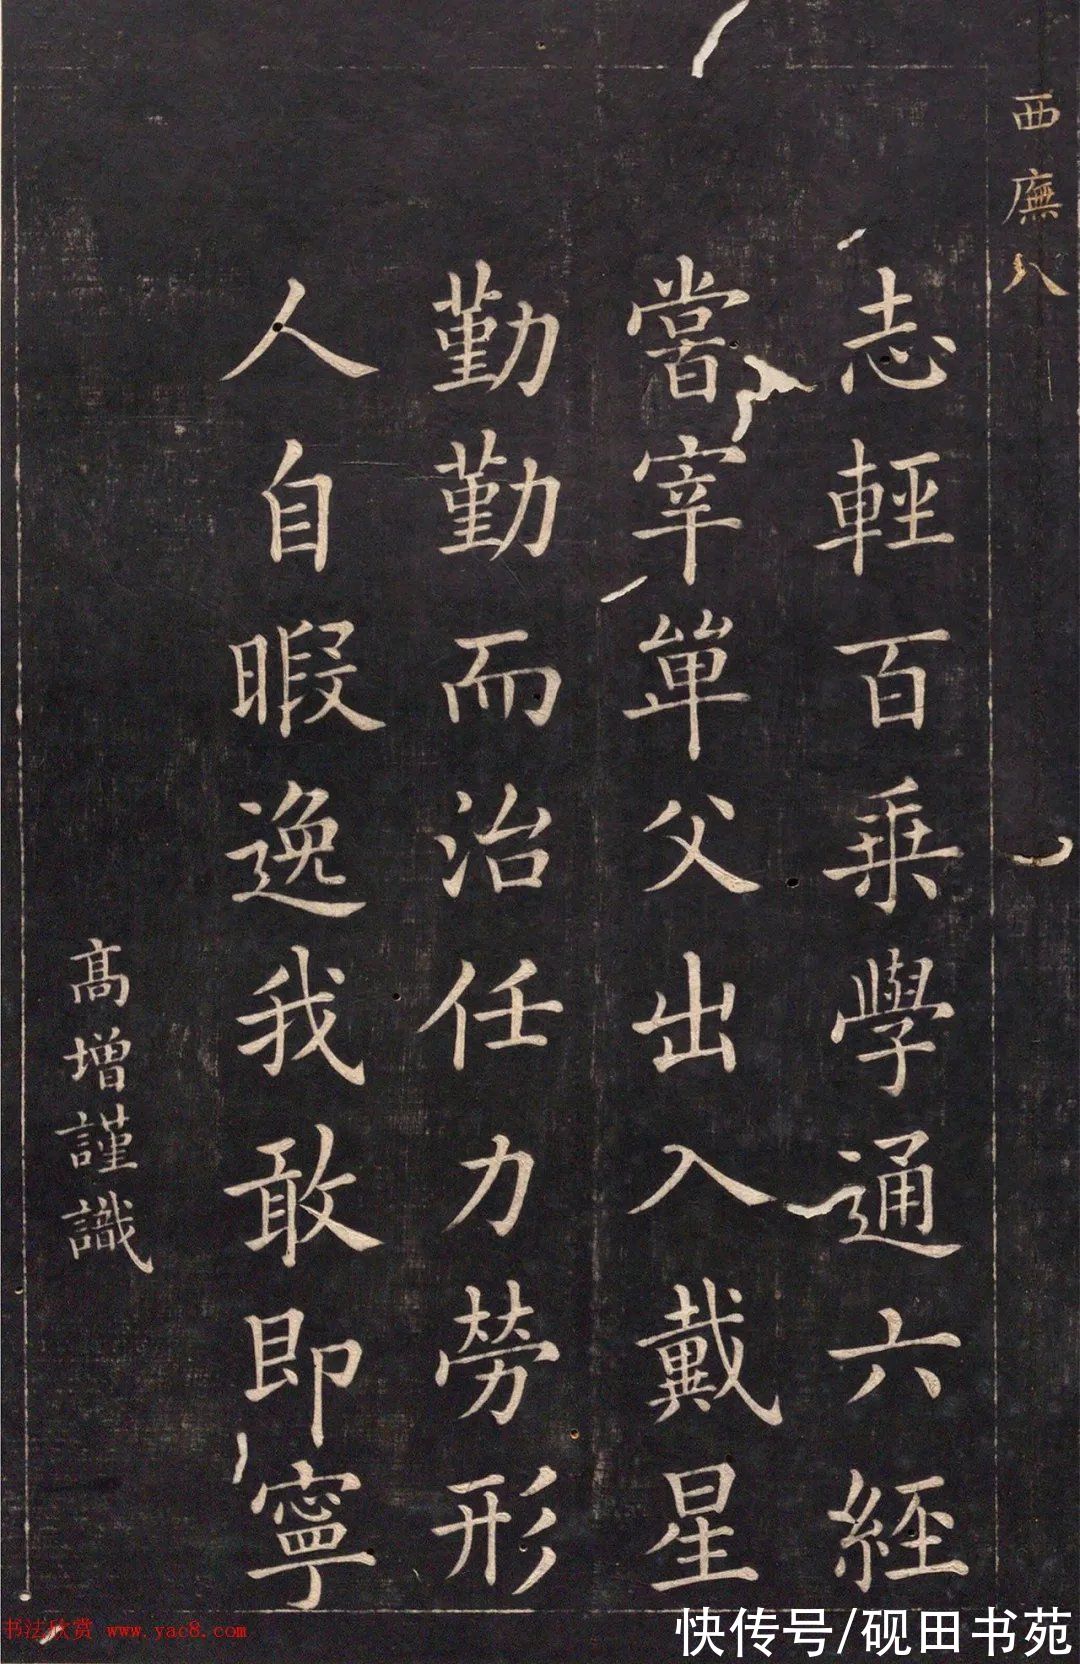 西廡八
志輕百乗學通六經
嘗宰單父出入戴星
勤勤而治任力勞形
人自暇逸我敢即寧
高增謹識
书法欣赏 www.yac8.com
快传号/砚田书苑